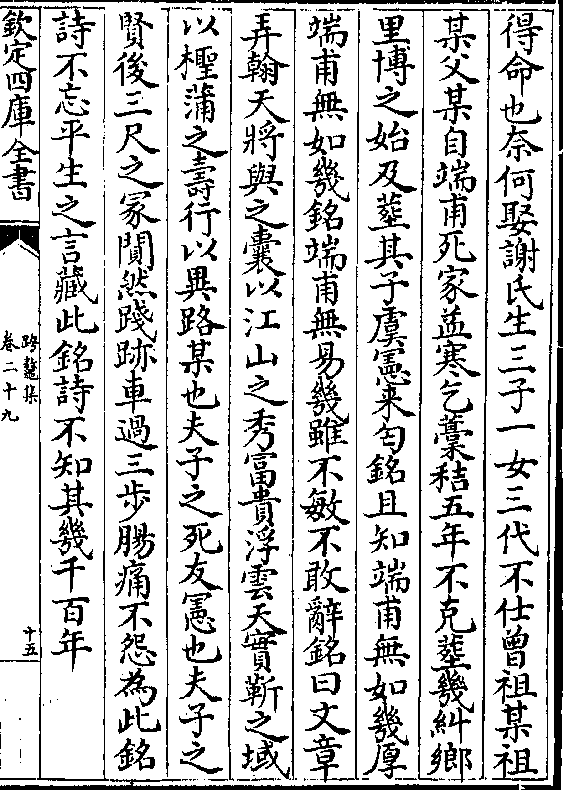 得命也奈何娶謝氏生三子一女三代不仕曾祖某祖
某父某自端甫死家益寒乞藁秸五年不克塟幾糾鄉
里博之始及塟其子虞憲来匄銘且知端甫無如幾厚
端甫無如幾銘端甫無易幾雖不敏不敢辭銘曰文章
弄翰天將與之囊以江山之秀富貴浮雲天實靳之域
以樫蒲之壽行以異路某也夫子之死友憲也夫子之
賢後三尺之冢闃然踐跡車過三步腸痛不怨為此銘
詩不忘平生之言藏此銘詩不知其幾千百年
欽定四庫全書
跨鼇集
卷二十九
十五